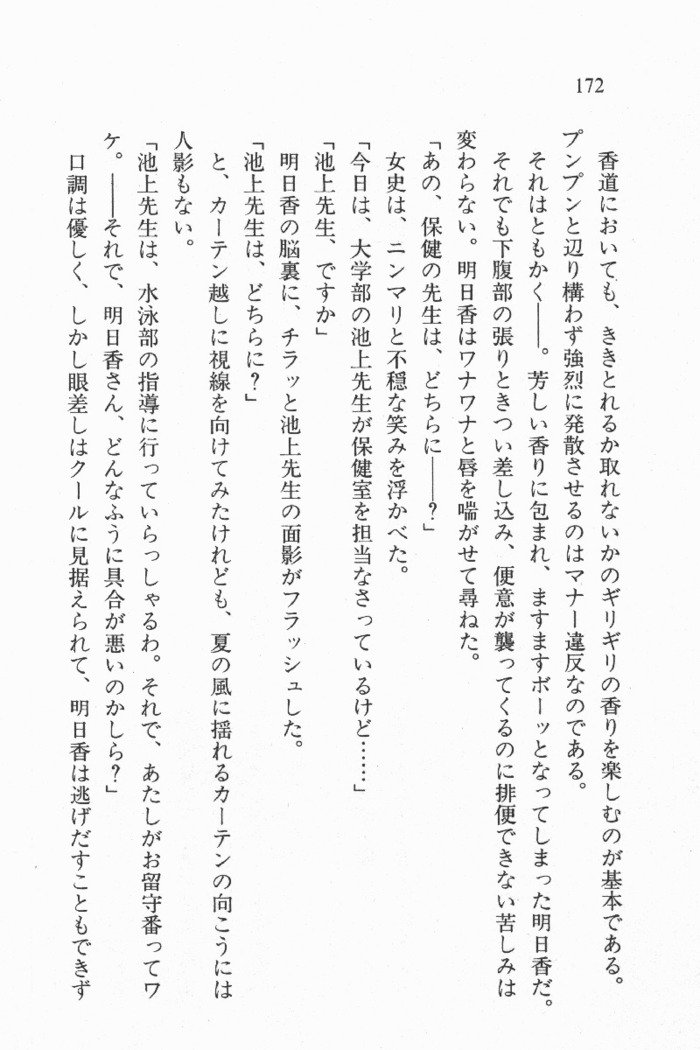 172
香道においても、ききとれるか取れないかのギリギリの香りを楽しむのが基本である。
プンプンと辺り構わず強烈に発散させるのはマナー違反なのである。
それはともかく――。芳しい香りに包まれ、ますますボーッとなってしまった明日香だ。
それでも下腹部の張りときつい差し込み、便意が襲ってくるのに排便できない苦しみは
変わらない。明日香はワナワナと唇を喘がせて尋ねた。
「あの、保健の先生は、どちらに――？」
女史は、ニンマリと不穏な笑みを浮かべた。
「今日は、大学部の池上先生が保健室を担当なさっているけど……」
「池上先生、ですか」
明日香の脳裏に、チラッと池上先生の面影がフラッシュした。
「池上先生は、どちらに？」
と、カーテン越しに視線を向けてみたけれども、夏の風に揺れるカーテンの向こうには
人影もない。
「池上先生は、水泳部の指導に行っていらっしゃるわ。それで、あたしがお留守番ってワ
ケ。――それで、明日香さん、どんなふうに具合が悪いのかしら？」
口調は優しく、しかし眼差しはクールに見据えられて、明日香は逃げだすこともできず